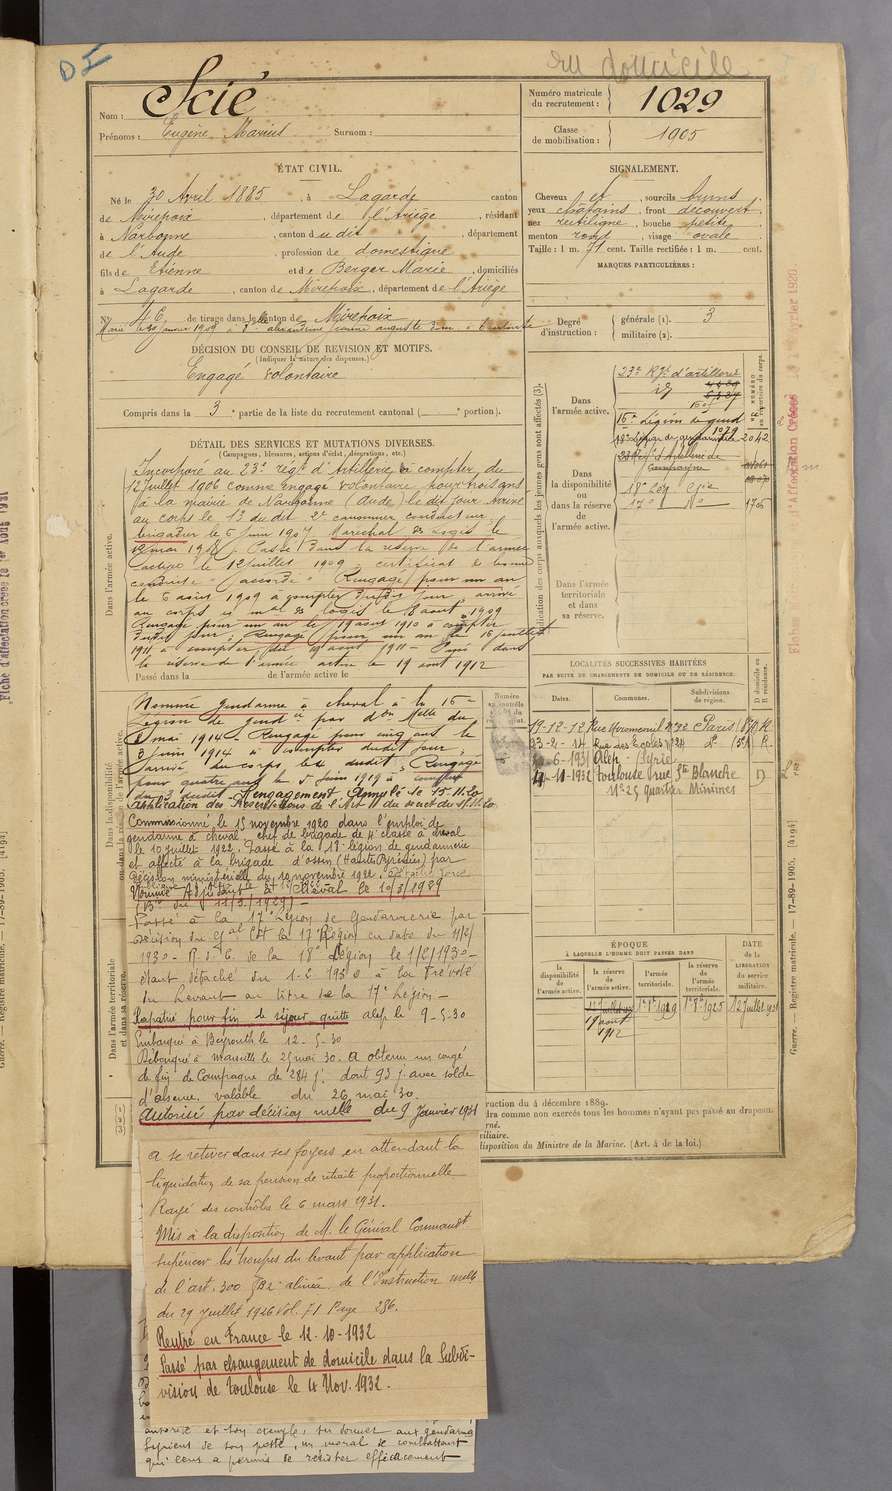 au domicile
Nom : Scié
Prénoms : Eugène Marius Surnom :
Numéro matricule du recrutement : 1029
Classe de mobilisation : 1905
ÉTAT CIVIL.
Né le 30 Avril 1885, à Lagarde canton
de Mirepoix, département de l'Ariège, résidant
à Narbonne, canton du dit, département
de l'Aude, profession de domestique
fils de Etienne et de Berger Marie, domiciliés
à Lagarde, canton de Mirepoix, département de l'Ariège
N° 46 de tirage dans le canton de Mirepoix
SIGNALEMENT.
Cheveux et, sourcils bruns
yeux châtains, front découvert,
nez rectiligne, bouche petite,
menton rond, visage ovale
Taille : 1 m. 71 cent. Taille rectifiée : 1 m. cent.
MARQUES PARTICULIÈRES :
Degré d'instruction : générale (1). 3
militaire (2).
DÉCISION DU CONSEIL DE REVISION ET MOTIFS.
(Indiquer la nature des dispenses.)
Engagé volontaire
Compris dans la 3e partie de la liste du recrutement cantonal ( e portion).
DÉTAIL DES SERVICES ET MUTATIONS DIVERSES.
(Campagnes, blessures, actions d'éclat, décorations, etc.)
Dans l'armée active.
Incorporé au 23e régt d'Artillerie à compter du
12 Juillet 1906 comme engagé volontaire pour trois ans
à la mairie de Narbonne (Aude) le dit jour Arrivé
au corps le 13 du dit 2e canonnier conducteur,
brigadier le 5 Juin 1907 Maréchal des Logis le
Passé dans la réserve de l'armée
active le 12 juillet 1909 certificat de bonne
conduite "accordé" Rengagé pour un an
le 6 août 1909 à compter dudit jour, arrivé
au corps et mal des logis le 8 août 1909
Rengagé pour un an le 19 août 1910 à compter
dudit jour; Rengagé pour un an le 16 juillet
1911 à compter du 19 août 1911 - Passé dans
la réserve de l'armée active le 19 août 1912
Passé dans la de l'armée active le
Nommé gendarme à cheval à la 16e
Légion de gendie par don Melle du
mai 1914 - Rengagé pour cinq ans le
3 juin 1914 à compter dudit jour;
arrivé au corps le 4 dudit; Rengagé
pour quatre ans le 5 juin 1919 à compter
du 3 dudit Rengagement Annulé le 15.11.20
Application des Prescriptions de l'Art 11 du
Commissionné le 15 novembre 1920 dans l'emploi de
gendarme à cheval, chef de brigade de 4e classe à cheval
le 10 juillet 1922. Passé à la 18e légion de gendarmerie
et affecté à la brigade d'Ossun (Hautes Pyrénées) par
décision ministérielle du 10 novembre 1922.
Nommé Adjudant à Cheval le 10/3/1929
Passé à la 17e Légion de Gendarmerie par
décision du Gal Cdt la 17e Région en date du
1930 - R.d.C. de la 18e Légion le
étant détaché du 1-2 1930 à la Prévôté
du Levant au titre de la 17e Légion -
Rapatrié pour fin de séjour quitte Alep le 9-5-30
Embarqué à Beyrouth le 12-5-30
Débarqué à Marseille le 25 mai 30. A obtenu un congé
de fin de Campagne de 284 j. dont 93 j. avec solde
d'absence, valable du 26 mai 30.
Autorisé par décision melle du 9 Janvier 1931
à se retirer dans ses foyers en attendant la
liquidation de sa pension de retraite proportionnelle
Rayé des contrôles le 6 mars 1931.
Mis à la disposition de M. le Général Commandt
supérieur les troupes du levant par application
de l'art. 300 § B 2e alinéa de l'Instruction melle
du 29 juillet 1926 Vol. 71 Page 286.
Rentré en France le 12-10-1932
Passé par changement de domicile dans la Subdi-
vision de Toulouse le 4 Nov. 1932.
autorité et son exemple, su donner aux gendarmes
Syriens de son poste, un moral de combattant
qui leur a permis de résister efficacement
Indication des corps auxquels les jeunes gens sont affectés (3).
NUMÉRO au répertoire du corps.
Dans l'armée active.
23e Rgt d'artillerie
Dans la disponibilité ou dans la réserve de l'armée active.
18e Légion de gendarmerie 2042
18e Lég. Gie
17e d° 1705
Dans l'armée territoriale et dans sa réserve.
LOCALITÉS SUCCESSIVES HABITÉES
PAR SUITE DE CHANGEMENTS DE DOMICILE OU DE RÉSIDENCE.
Dates. Communes. Subdivisions de région. D domicile ou R résidence.
19-12-12 Rue Miromenil n°32 Paris
23-2-14 Rue des Ecoles n°24 R.
6-1931 Alep Syrie
4-11-1932 Toulouse 7 rue Ste Blanche D
N° 25 Quartier Minimes
ÉPOQUE
À LAQUELLE L'HOMME DOIT PASSER DANS
DATE de la LIBÉRATION du service militaire.
la disponibilité de l'armée active.
la réserve de l'armée active.
l'armée territoriale.
la réserve de l'armée territoriale.
19 août 1912
12 Juillet 1931
ruction du 4 décembre 1889.
dra comme non exercés tous les hommes n'ayant pas passé au drapeau.
rné.
xiliaire.
disposition du Ministre de la Marine. (Art. 4 de la loi.)
Dans la disponibilité ou dans la réserve de l'armée active.
Dans l'armée territoriale et dans sa réserve.
Guerre. — Registre matricule. — 17-89-1905. [4194]
Fiche d'affectation créée le 1er Août 1931